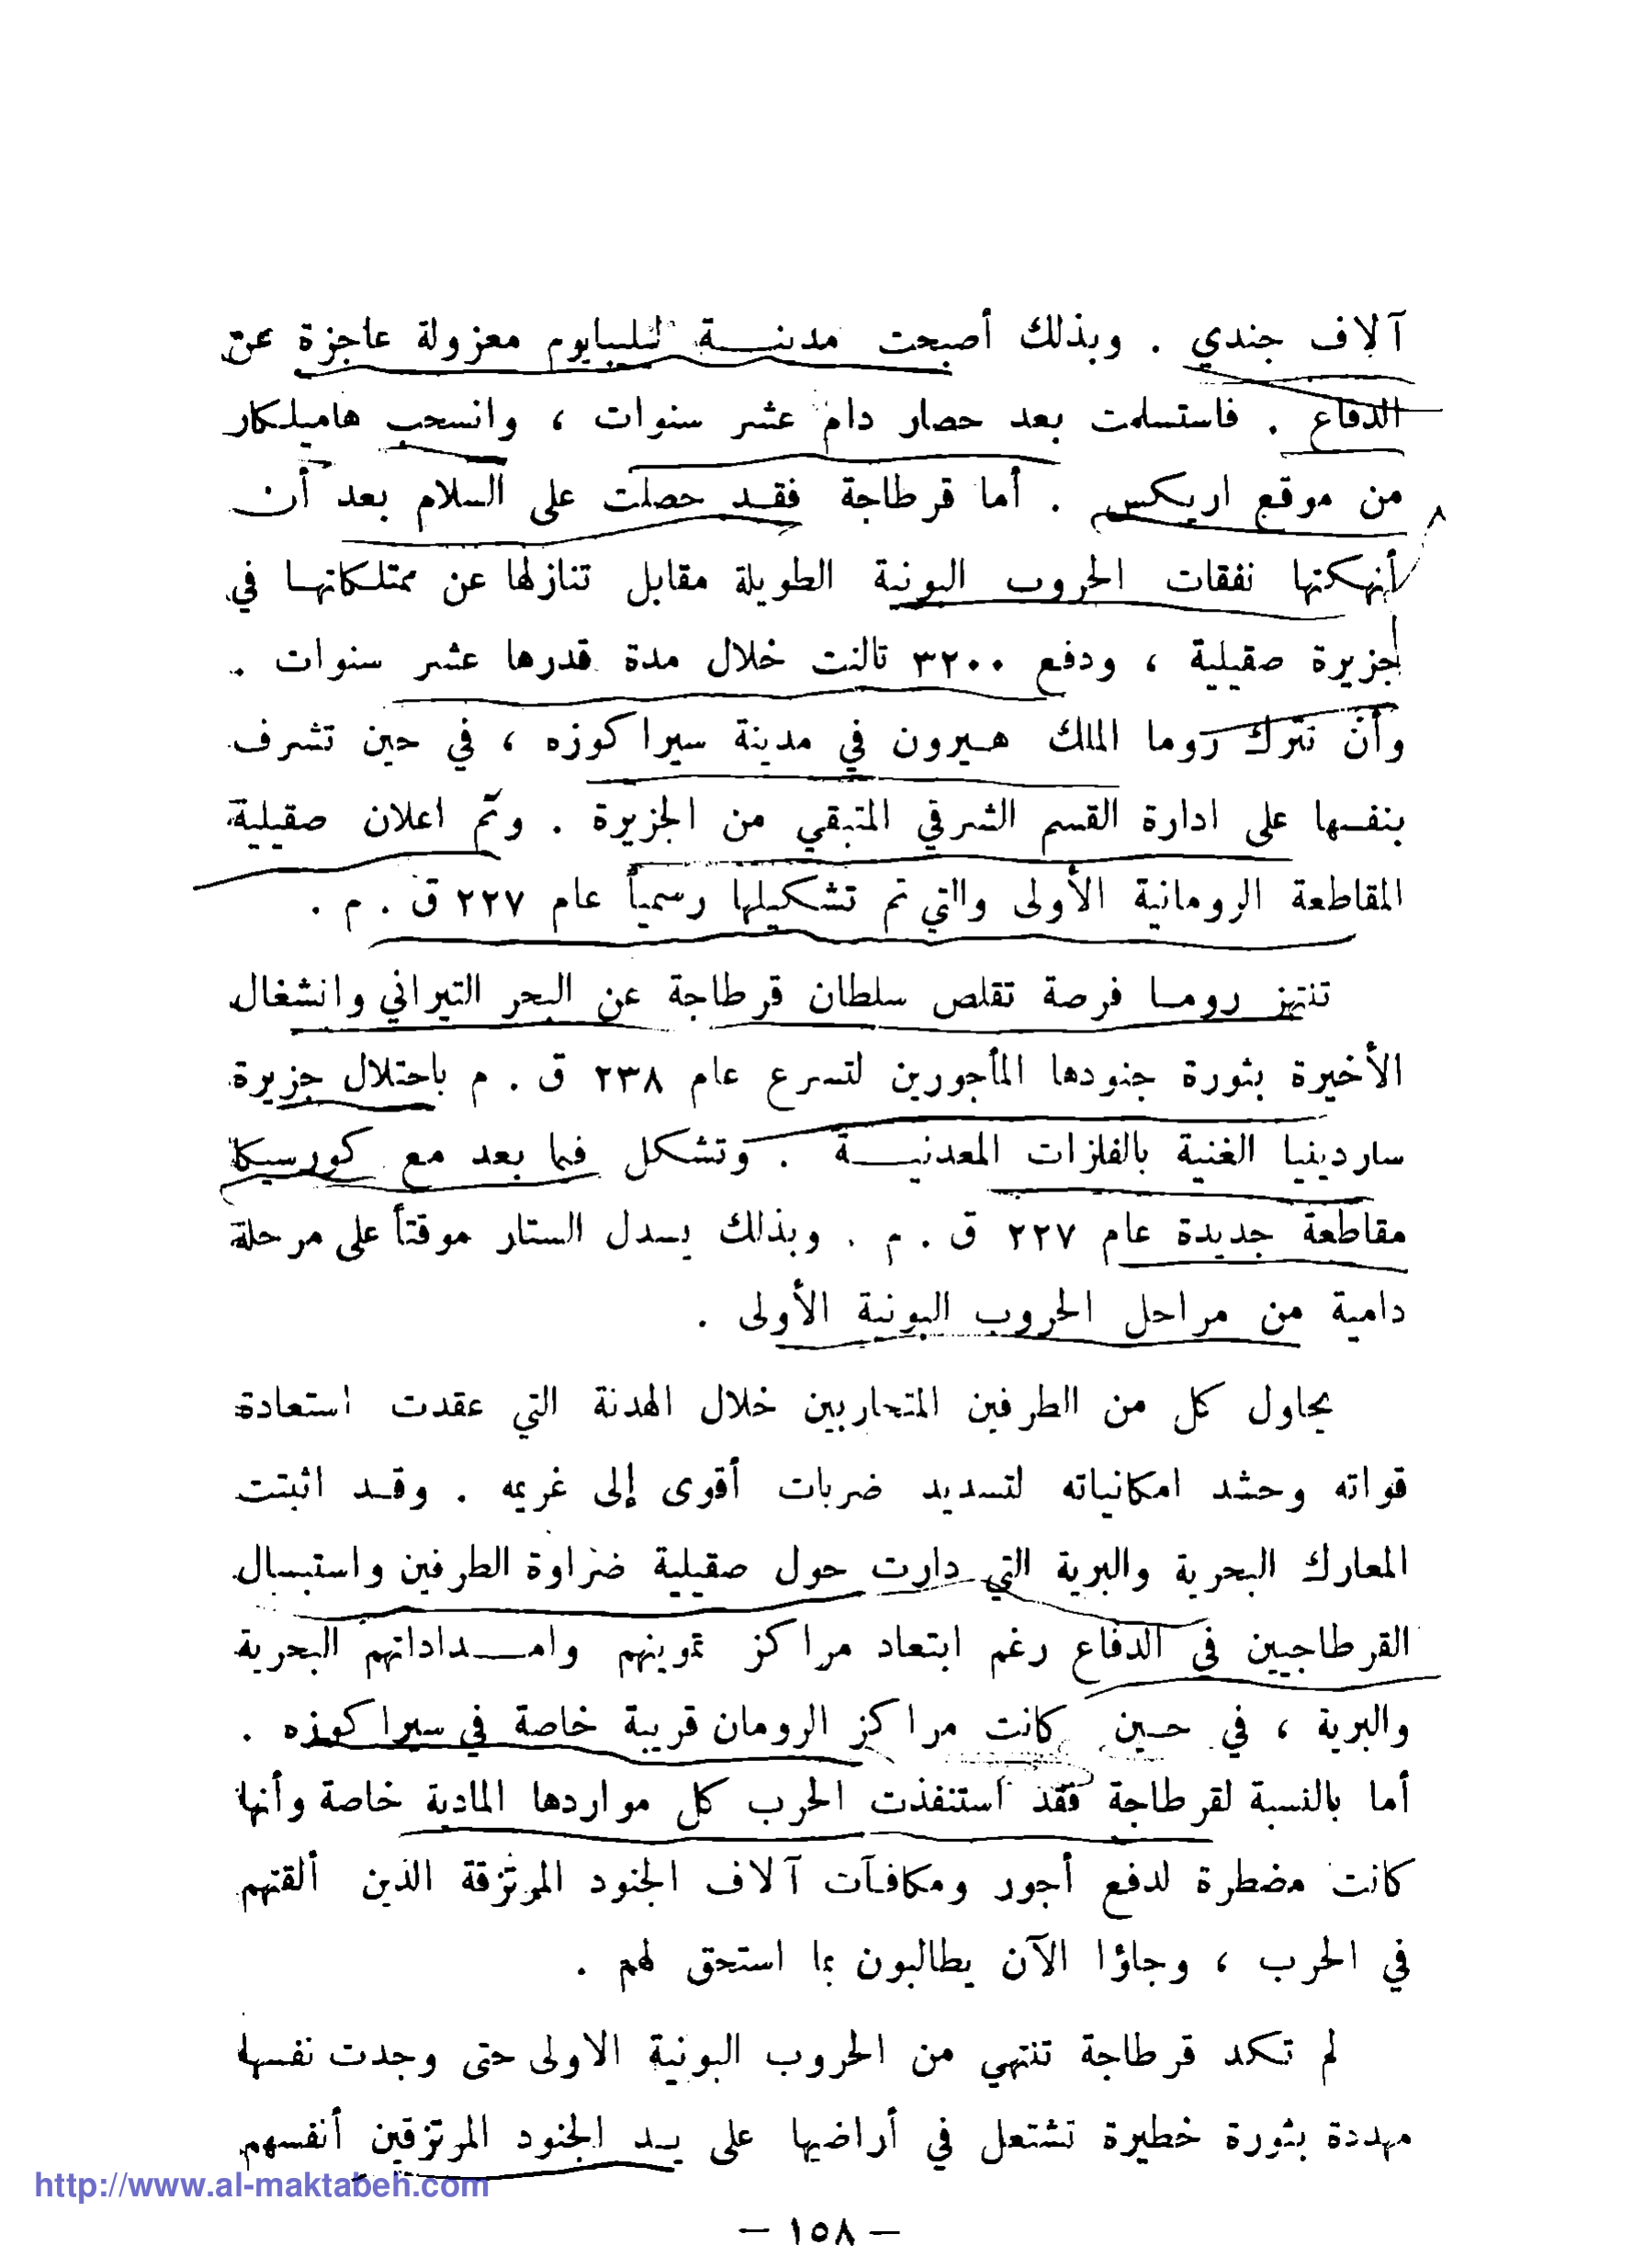 آلاف جندي . وبذلك أصبحت مدينـــة ليليبايوم معزولة عاجزة عن
الدفاع . فاستسلمت بعد حصار دام عشر سنوات ، وانسحب هاميلكار
من موقع اريكس . أما قرطاجة فقد حصلت على السلام بعد أن
أنهكتها نفقات الحروب البونية الطويلة مقابل تنازلها عن ممتلكاتها في
جزيرة صقيلية ، ودفع ٣٢٠٠ تالنت خلال مدة قدرها عشر سنوات .
وأن تترك روما الملك هيرون في مدينة سيراكوزه ، في حين تشرف
بنفسها على ادارة القسم الشرقي المتبقي من الجزيرة . وتم اعلان صقيلية
المقاطعة الرومانية الأولى والتي تم تشكيلها رسمياً عام ٢٢٧ ق . م .
تنتهز روما فرصة تقلص سلطان قرطاجة عن البحر التيراني وانشغال
الأخيرة بثورة جنودها المأجورين لتسرع عام ٢٣٨ ق . م باحتلال جزيرة
ساردينيا الغنية بالفلزات المعدنيـــة . وتشكل فيما بعد مع كورسيكا
مقاطعة جديدة عام ٢٢٧ ق . م . وبذلك يسدل الستار موقتاً على مرحلة
دامية من مراحل الحروب البونية الأولى .
يحاول كل من الطرفين المتحاربين خلال الهدنة التي عقدت استعادة
قواته وحشد امكانياته لتسديد ضربات أقوى إلى غريمه . وقد اثبتت
المعارك البحرية والبرية التي دارت حول صقيلية ضراوة الطرفين واستبسال
القرطاجيين في الدفاع رغم ابتعاد مراكز تموينهم وامـــداداتهم البحرية
والبرية ، في حين كانت مراكز الرومان قريبة خاصة في سيراكوزه .
أما بالنسبة لقرطاجة فقد استنفذت الحرب كل مواردها المادية خاصة وأنها
كانت مضطرة لدفع أجور ومكافآت آلاف الجنود المرتزقة الذين ألقتهم
في الحرب ، وجاؤا الآن يطالبون بما استحق لهم .
لم تكد قرطاجة تنتهي من الحروب البونية الاولى حتى وجدت نفسها
مهددة بثورة خطيرة تشتعل في أراضيها على يد الجنود المرتزقين أنفسهم
http://www.al-maktabeh.com
— ١٥٨ —